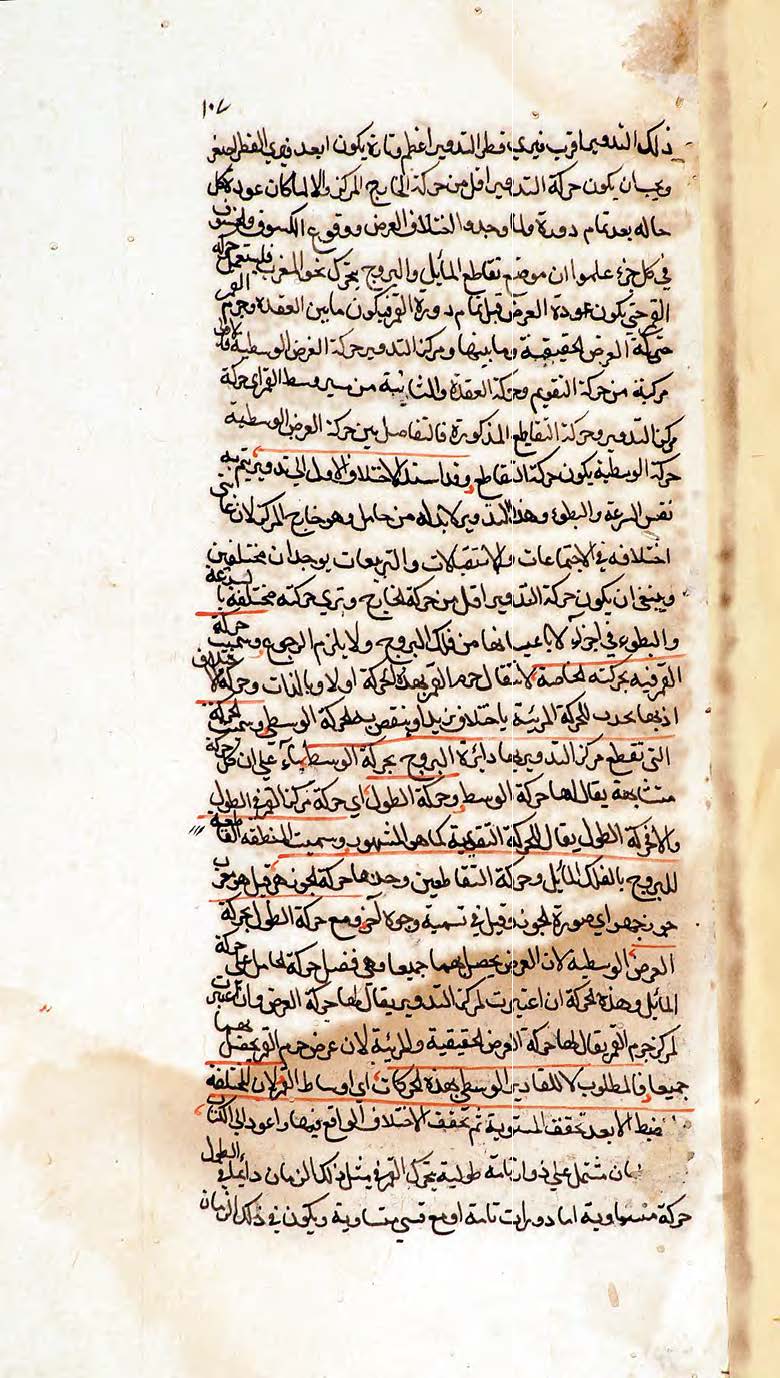 ١٠٧
ذلك التدوير اقرب فيرى قطر التدوير اعظم وتارة يكون ابعد فيرى القطر اصغر
ويجب ان يكون حركة التدوير اقل من حركة الخارج المركز والا لما كان عودة كل
حاله بعد تمام دورة ولما وجدوا اختلاف العرض ووقوع الكسوف والخسوف
في كل جزء علموا ان موضع تقاطع المايل والبروج يتحرك نحو المغرب فليستعمل حركة
القمر حتى يكون عودة العرض قبل تمام دورة القمر فيكون ما بين العقدة وجرم القمر
حركة العرض الحقيقية وما بينها ومركز التدوير حركة العرض الوسطية
مركبة من حركة التقويم وحركة العقدة والثانية من سير وسط القمر اى حركة
مركز التدوير وحركة التقاطع المذكورة فالتفاضل بين حركة العرض الوسطية
حركة الوسطية يكون حركة التقاطع وقد اسند الاختلاف الاول الى تدوير يتم به
نفس السرعة والبطوء وهذا التدوير لابد له من حامل وهو خارج المركز لان
اختلافه في الاجتماعات والاستقبالات والتربيعات يوجدان مختلفين
وينبغي ان يكون حركة التدوير اقل من حركة الخارج وترى حركته مختلفة بالسرعة
والبطوء في اجزاء لا باعيانها من فلك البروج ولا يلزم الرجوع وسميت حركة
القمر فيه بحركته الخاصة لانتقال جرم القمر بهذه الحركة اولا وبالذات وحركة الاختلاف
اذ بها يحدث للحركة المرئية اختلاف يزيد او ينقص به الحركة الوسطى وسميت الحركة
التى تقطع مركز التدوير بها دائرة البروج بحركة الوسط بناء على ان كل حركة
متشابهة يقال لها حركة الوسط وحركة الطول اى حركة مركز القمر في الطول
والا فحركة الطول يقال للحركة التقويمية كما هو المشهور وسميت المنطقة القاطعة
للبروج بالفلك المائل وحركة التقاطعين وحدها حركة الجوزهر قيل هو معرب
جوزچهر اى صورة الجوز وقيل في تسمية وجوه آخر ومع حركة الطول بحركة
العرض الوسطية لان العرض يحصل بهما جميعا وهى فضل حركة الحامل على حركة
المائل وهذه الحركة ان اعتبرت لمركز التدوير يقال لها حركة العرض وان اعتبرت
لمركز جرم القمر يقال لها حركة العرض الحقيقية والمرئية لان عرض جرم القمر يحصل بهما
جميعا فالمطلوب لا للمقادير الوسطى بهذه الحركات اى اوساط القمر لان المختلفة
ضبط الا بعد تحقق المستوية ثم تحقق الاختلاف الواقع فيها واعود الى الكتاب
مان مشتمل على ذوار تامة طولية يتحرك القمر في مثل ذلك الزمان دائما في الطول
حركة متساوية اما دورات تامة او مع قسي متساوية ويكون في ذلك الزمان